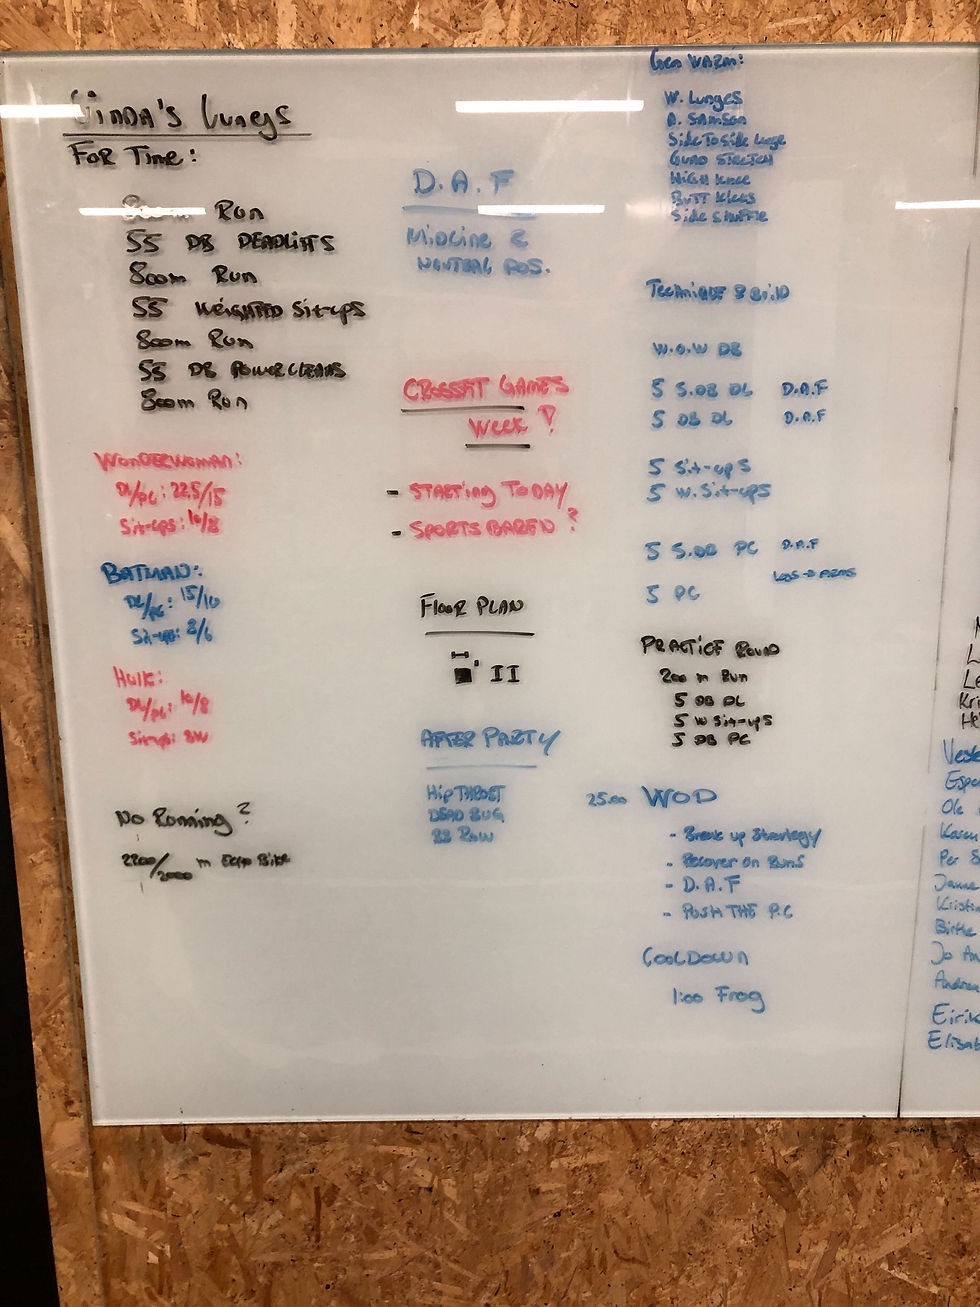 Linda's Lungs
For Time:
800m Run
55 DB DEADLIFTS
800m Run
55 WEIGHTED Sit-ups
800m Run
55 DB POWERCLEANS
800m Run
WONDERWOMAN:
DL/PC: 22.5/15
Sit-ups: 10/8
BATMAN:
DL/PC: 15/10
Sit-ups: 8/6
Hulk:
DL/PC: 10/8
Sit-ups: BW
No Running?
2200/2000 m Echo Bike
D.A.F
Midline &
NEUTRAL POS.
CROSSFIT GAMES
Week!
- STARTING TODAY
- SPORTSBAREN?
Floor PLAN
II
AFTER PARTY
Hip THRUST
DEAD BUG
BB Row
Gen WARM:
W. Lunges
A. SAMSON
Side To Side Lunge
STRETCH
HIGH knee
BUTT Kicks
Side SHUFFLE
TechniQUE & Build
W.O.W DB
5 S.DB DL D.A.F
5 DB DL D.A.F
5 Sit-ups
5 W. Sit-ups
5 S.DB PC D.A.F
5 PC
LEGS -> ARMS
PRACTICE ROUND
200 m Run
5 DB DL
5 W Sit-ups
5 DB PC
25:00 WOD
- Break up Strategy
- Recover on Runs
- D.A.F
- Push THE P.C
COOLDOWN
1:00 Frog
Ole
Per S
Kristin
Birthe
Jo An
Andrea
Eirik
Elisab